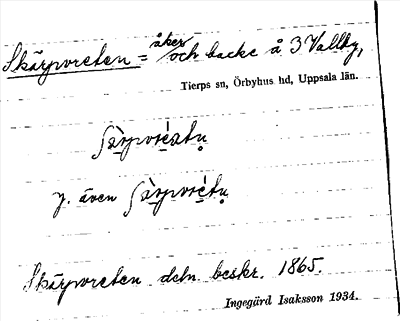 Skärpvreten = åker och backe å 3 Vallby,
Tierps sn, Örbyhus hd, Uppsala län.
y. även
Skärpvreten detn. beskr. 1865.
Ingegärd Isaksson 1934.